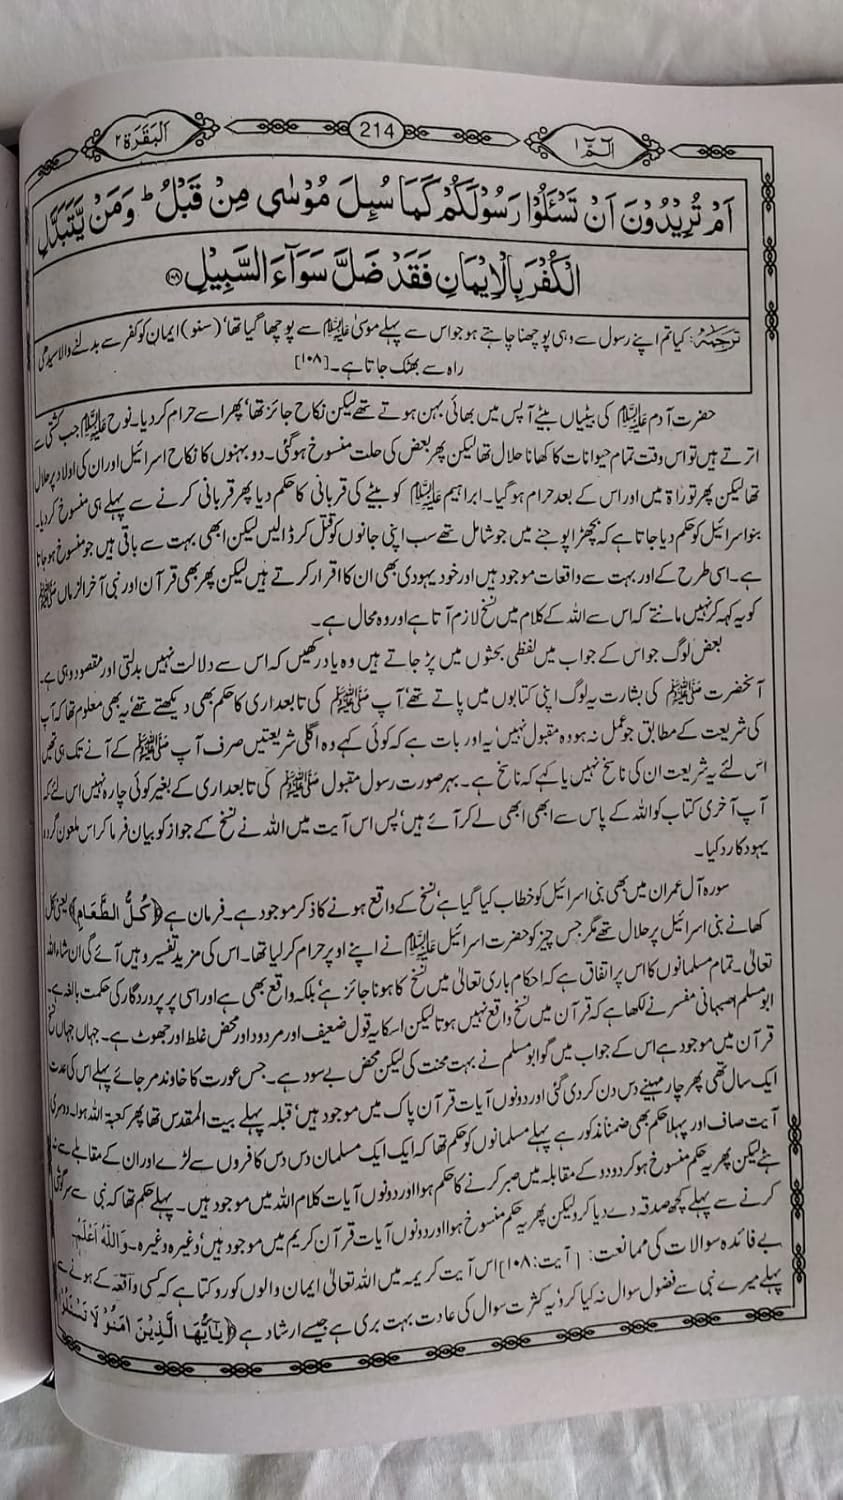 الٓمّٓ ۱
214
اَلْبَقَرَة ۲
اَمْ تُرِیْدُوْنَ اَنْ تَسْئَلُوْا رَسُوْلَكُمْ كَمَا سُىِٕلَ مُوْسٰی مِنْ قَبْلُ ؕ وَمَنْ یَّتَبَدَّلِ
الْكُفْرَ بِالْاِیْمَانِ فَقَدْ ضَلَّ سَوَآءَ السَّبِیْلِ ﴿۱۰۸﴾
ترجمہ: کیا تم اپنے رسول سے وہی پوچھنا چاہتے ہو جو اس سے پہلے موسیٰ علیہ السلام سے پوچھا گیا تھا‘ (سنو) ایمان کو کفر سے بدلنے والا سیدھی
راہ سے بھٹک جاتا ہے۔ [۱۰۸]
حضرت آدم علیہ السلام کی بیٹیاں بیٹے آپس میں بھائی بہن ہوتے تھے لیکن نکاح جائز تھا‘ پھر اسے حرام کر دیا۔ نوح علیہ السلام جب کشتی سے
اترتے ہیں تو اس وقت تمام حیوانات کا کھانا حلال تھا لیکن پھر بعض کی حلت منسوخ ہو گئی۔ دو بہنوں کا نکاح اسرائیل اور ان کی اولاد پر حلال
تھا لیکن پھر توراۃ میں اور اس کے بعد حرام ہو گیا۔ ابراہیم علیہ السلام کو بیٹے کی قربانی کا حکم دیا پھر قربانی کرنے سے پہلے ہی منسوخ کر دیا۔
بنو اسرائیل کو حکم دیا جاتا ہے کہ بچھڑا پوجنے میں جو شامل تھے سب اپنی جانوں کو قتل کر ڈالیں لیکن ابھی بہت سے باقی ہیں جو منسوخ ہو جاتا
ہے۔ اسی طرح کے اور بہت سے واقعات موجود ہیں اور خود یہودی بھی ان کا اقرار کرتے ہیں لیکن پھر بھی قرآن اور نبی آخر الزماں ﷺ
کو یہ کہہ کر نہیں مانتے کہ اس سے اللہ کے کلام میں نسخ لازم آتا ہے اور وہ محال ہے۔
بعض لوگ جو اس کے جواب میں لفظی بحثوں میں پڑ جاتے ہیں وہ یاد رکھیں کہ اس سے دلالت نہیں بدلتی اور مقصود وہی ہے۔
آنحضرت ﷺ کی بشارت یہ لوگ اپنی کتابوں میں پاتے تھے‘ آپ ﷺ کی تابعداری کا حکم بھی دیکھتے تھے‘ یہ بھی معلوم تھا کہ آپ
کی شریعت کے مطابق جو عمل نہ ہو وہ مقبول نہیں‘ یہ اور بات ہے کہ کوئی کہے وہ اگلی شریعتیں صرف آپ ﷺ کے آنے تک ہی تھیں
اس لئے یہ شریعت ان کی ناسخ نہیں یا کہے کہ ناسخ ہے۔ بہر صورت رسول مقبول ﷺ کی تابعداری کے بغیر کوئی چارہ نہیں اس لئے کہ
آپ آخری کتاب کو اللہ کے پاس سے ابھی ابھی لے کر آئے ہیں‘ پس اس آیت میں اللہ نے نسخ کے جواز کو بیان فرما کر اس ملعون گروہ
یہود کا رد کیا۔
سورہ آل عمران میں بھی بنی اسرائیل کو خطاب کیا گیا ہے‘ نسخ کے واقع ہونے کا ذکر موجود ہے۔ فرمان ہے ﴿كُلُّ الطَّعَامِ﴾ یعنی کل
کھانے بنی اسرائیل پر حلال تھے مگر جس چیز کو حضرت اسرائیل علیہ السلام نے اپنے اوپر حرام کر لیا تھا۔ اس کی مزید تفسیر وہیں آئے گی ان شاء اللہ
تعالیٰ۔ تمام مسلمانوں کا اس پر اتفاق ہے کہ احکام باری تعالیٰ میں نسخ کا ہونا جائز ہے‘ بلکہ واقع بھی ہے اور اسی پر پروردگار کی حکمت بالغہ ہے۔
ابو مسلم اصبہانی مفسر نے لکھا ہے کہ قرآن میں نسخ واقع نہیں ہوتا لیکن اسکا یہ قول ضعیف اور مردود اور محض غلط اور جھوٹ ہے۔ جہاں جہاں نسخ
قرآن میں موجود ہے اس کے جواب میں گو ابو مسلم نے بہت محنت کی لیکن محض بے سود ہے۔ جس عورت کا خاوند مر جائے پہلے اس کی عدت
ایک سال تھی پھر چار مہینے دس دن کر دی گئی اور دونوں آیات قرآن پاک میں موجود ہیں‘ قبلہ پہلے بیت المقدس تھا پھر کعبۃ اللہ ہوا۔ دوسری
آیت صاف اور پہلا حکم بھی ضمناً مذکور ہے پہلے مسلمانوں کو حکم تھا کہ ایک ایک مسلمان دس دس کافروں سے لڑے اور ان کے مقابلے سے نہ
ہٹے لیکن پھر یہ حکم منسوخ ہو کر دو دو کے مقابلہ میں صبر کرنے کا حکم ہوا اور دونوں آیات کلام اللہ میں موجود ہیں۔ پہلے حکم تھا کہ نبی سے سرگوشی
کرنے سے پہلے کچھ صدقہ دے دیا کرو لیکن پھر یہ حکم منسوخ ہوا اور دونوں آیات قرآن کریم میں موجود ہیں‘ وغیرہ وغیرہ۔ وَاللّٰهُ اَعْلَمُ۔
بے فائدہ سوالات کی ممانعت: [آیت:۱۰۸] اس آیت کریمہ میں اللہ تعالیٰ ایمان والوں کو روکتا ہے کہ کسی واقعہ کے ہونے سے
پہلے میرے نبی سے فضول سوال نہ کیا کرو‘ یہ کثرت سوال کی عادت بہت بری ہے جیسے ارشاد ہے ﴿یٰۤاَیُّهَا الَّذِیْنَ اٰمَنُوْا لَا تَسْئَلُوْا